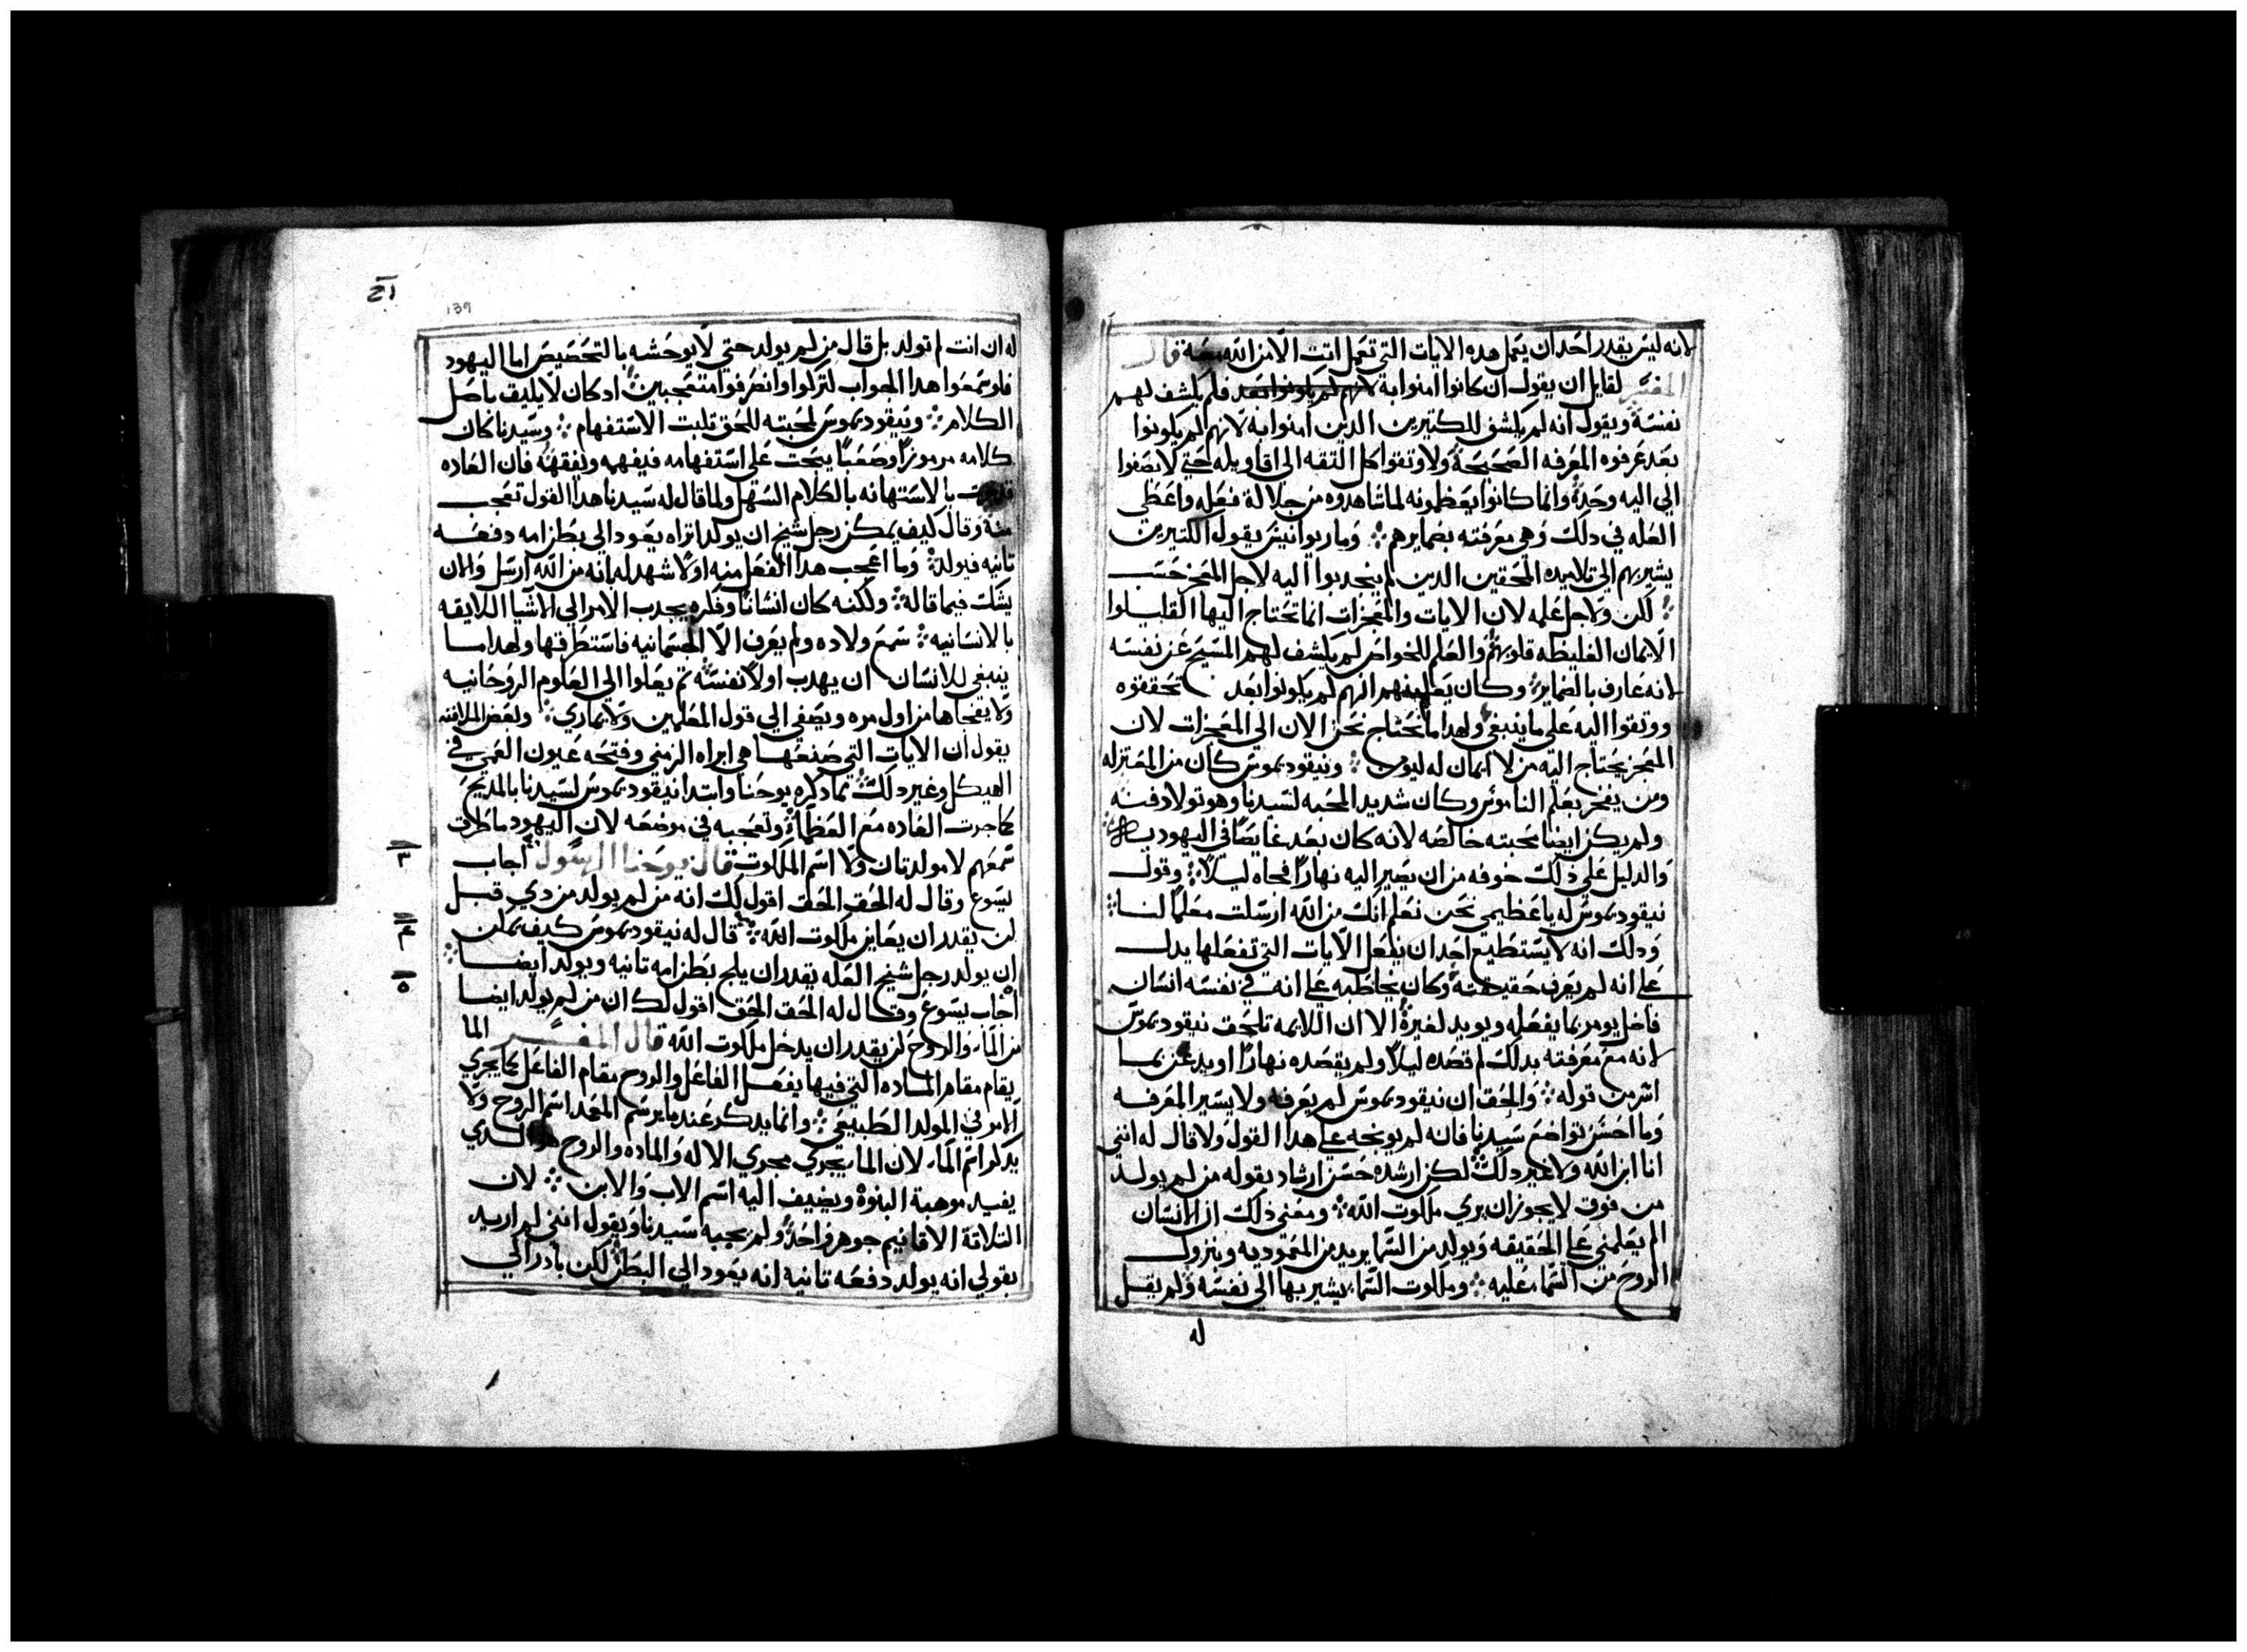 لانه ليس يقدر احد ان يعمل هده الايات التي تعمل انت الا من الله معه قال
المفسر لقايل ان يقول ان كانوا امنوا به فلم يكشف لهم
نفسه ويقول انه لم يكشف للكتيرين الدين امنوا به لانهم لم يكونوا
بعد عرفوه المعرفه الصحيحة ولا وتقوا كل التقه الي اقاويله حتي لا يصغوا
الي اليه وحده وانما كانوا يعظمونه لما شاهدوه من جلالة فعله واعظي
العله في دلك وهي معرفته بضمايرهم وماريوانيس يقول الكتيرين
يشير بهم الي تلاميده المحقين الدين لم ينجدبوا اليه لاجل المعجز حسب
لكن ولاجل علمه لان الايات والمعجزات انما تحتاج اليها القليلوا
الايمان الغليظه قلوبهم والعلم للخواص لم يكشف لهم المسيح عن نفسه
لانه عارف بالضماير وكان يعلم منهم انهم لم يكونوا بعد تحققوه
ووتقوا اليه علي ما ينبغي ولهدا ما نحتاج نحن الان الي المعجزات لان
المعجز يحتاج اليه من لا ايمان له ليومن ونيقوديموس كان من المعتزله
ومن يفخر بعلم الناموس وكان شديد المحبه لسيدنا وهو تولا دفنه
ولم يكن ايضا محبته خالصه لانه كان بعد غايصا في اليهوديه
والدليل علي دلك خوفه من ان يصير اليه نهارا فجاه ليلا وقول
نيقوديموس له يا عظيمي نحن نعلم انك من الله ارسلت معلما لنا
ودلك انه لا يستطيع احد ان يفعل الايات التي تفعلها يدل
علي انه لم يعرف حقيقته وكان يخاطبه علي انه في نفسه انسان
فاضل يومر بما يفعله ويويد لغيره الا ان اللايمه تلحق نيقوديموس
لانه مع معرفته بدلك لم قصده ليلا ولم يقصده نهارا او يدعن بما
اتمر من قوله والحق ان نيقوديموس لم يعرفه ولا يسير المعرفه
وما احسن تواضع سيدنا فانه لم يوبخه علي هدا القول ولا قال له انني
انا ابن الله ولا غير دلك لكن ارشده حسن ارشاد بقوله من لم يولد
من فوق لا يجوز ان يري ملكوت الله ومعني دلك ان الانسان
الم يعلمني علي الحقيقه ويولد من السما يريد من المعموديه وبنزول
الروح من السما عليه وملكوت السما يشير بها الي نفسه ولم يقل
له
139
له ان انت لم تولد بل قال من لم يولد حتي لا يوحشه بالتخصيص اما اليهود
فلو سمعوا هدا الجواب لتركوا وانصرفوا متعجبين ادكان لا يليق باصل
الكلام ونيقوديموس لمحبته للحق تلبت الاستفهام وسيدنا كان
كلامه مرموزا وصعبا يبحت علي استفهامه فيفهمه ويفقهه فان العاده
بالاستهانه بالكلام السهل ولما قال له سيدنا هدا القول تعجب
منه وقال كيف يمكن رجل شيخ ان يولد اتراه يعود الي بطن امه دفعه
تانيه فيولد وما اعجب هدا الفعل منه اولا شهد له انه من الله ارسل والان
يشك فيما قاله ولكنه كان انسانا وفكره يجدب الامر الي الاشيا اللايقه
بالانسانيه سمع ولاده ولم يعرف الا الجسمانيه فاستطرفها ولهدا ما
ينبغي للانسان ان يهدب اولا نفسه تم يعلوا الي العلوم الروحانيه
ولا يفجاها من اول مره ويصغي الي قول المعلمين ولا يماري وبعض الملافنه
يقول ان الايات التي صنعها هي ابراه الزمني وفتحه عيون العمي في
الهيكل وغير دلك مما دكره يوحنا وابتدا نيقوديموس لسيدنا بالمديح
كما جرت العاده مع العظما وتعجبه في موضعه لان اليهود ما طرق
سمعهم لا مولد تان ولا اسم الملكوت قال يوحنا الرسول اجاب
يسوع وقال له الحق الحق اقول لك انه من لم يولد من دي قبل
لن يقدر ان يعاين ملكوت الله قال له نيقوديموس كيف يمكن
ان يولد رجل شيخ العله يقدر ان يلج بطن امه تانيه ويولد ايضا
اجاب يسوع وقال له الحق الحق اقول لك ان من لم يولد ايضا
من الما والروح لن يقدر ان يدخل ملكوت الله قال المفسر الما
يقام مقام الماده التي فيها يفعل الفاعل والروح مقام الفاعل كما يجري
الامر في المولد الطبيعي وانما يدكر عند ما يرسم المعمد اسم الروح ولا
يدكر اسم الما لان الما يجري مجري الاله والماده والروح هو الدي
يفيد موهبة البنوة ويضيف اليه اسم الاب والابن لان
التلاتة الاقانيم جوهر واحد ولم يجبه سيدنا ويقول انني لم اريد
بقولي انه يولد دفعه تانيه انه يعود الي البطن لكن بادر الي
٣
٤
٥